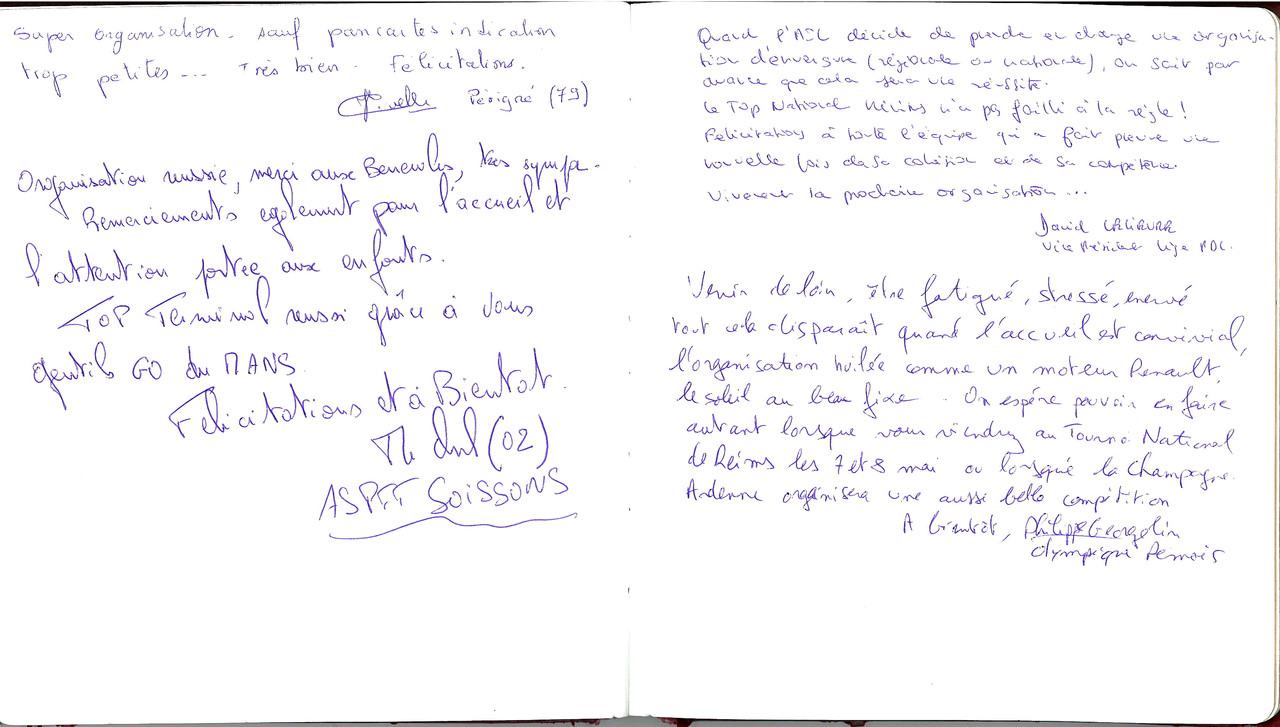 Super organisation. sauf pancartes indication
trop petites... Très bien. Félicitations.
Périgné (79)
Organisation reussie, merci aux Benevoles, très sympa.
Remerciements egalement pour l'accueil et
l'attention portée aux enfants.
TOP Terminal reussi grâce à vous
gentils GO du MANS.
Félicitations et à Bientot.
(02)
ASPTT SOISSONS
Quand l'ASC décide de prendre en charge une organisa-
tion d'envergure (régionale ou nationale), on sait par
avance que cela sera une réussite.
Le Top National n'a pas failli à la règle!
Félicitations à toute l'équipe qui a fait preuve une
nouvelle fois de sa cohésion et de sa compétence.
Vivement la prochaine organisation...
David
Vice Président Ligue PDL.
Venir de loin, être fatigué, stressé, énervé
tout cela disparaît quand l'accueil est convivial,
l'organisation huilée comme un moteur Renault,
le soleil au beau fixe. On espère pouvoir en faire
autant lorsque vous viendrez au Tournoi National
de Reims les 7 et 8 mai ou lorsque la Champagne.
Ardenne organisera une aussi belle compétition
A bientôt, Philippe Georgelin
Olympique Remois